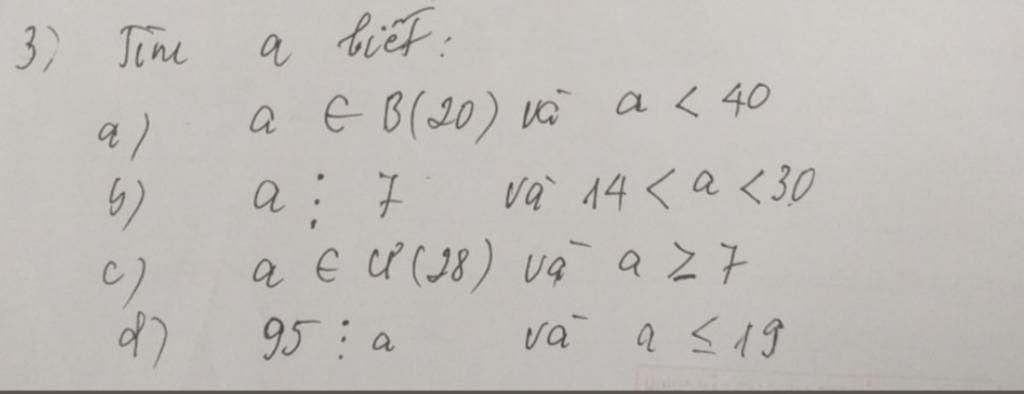 3) Tìm a biết:
a) a ∈ B(20) và a < 40
b) a ⋮ 7 và 14 < a < 30
c) a ∈ Ư(28) và a ≥ 7
d) 95 ⋮ a và a ≤ 19